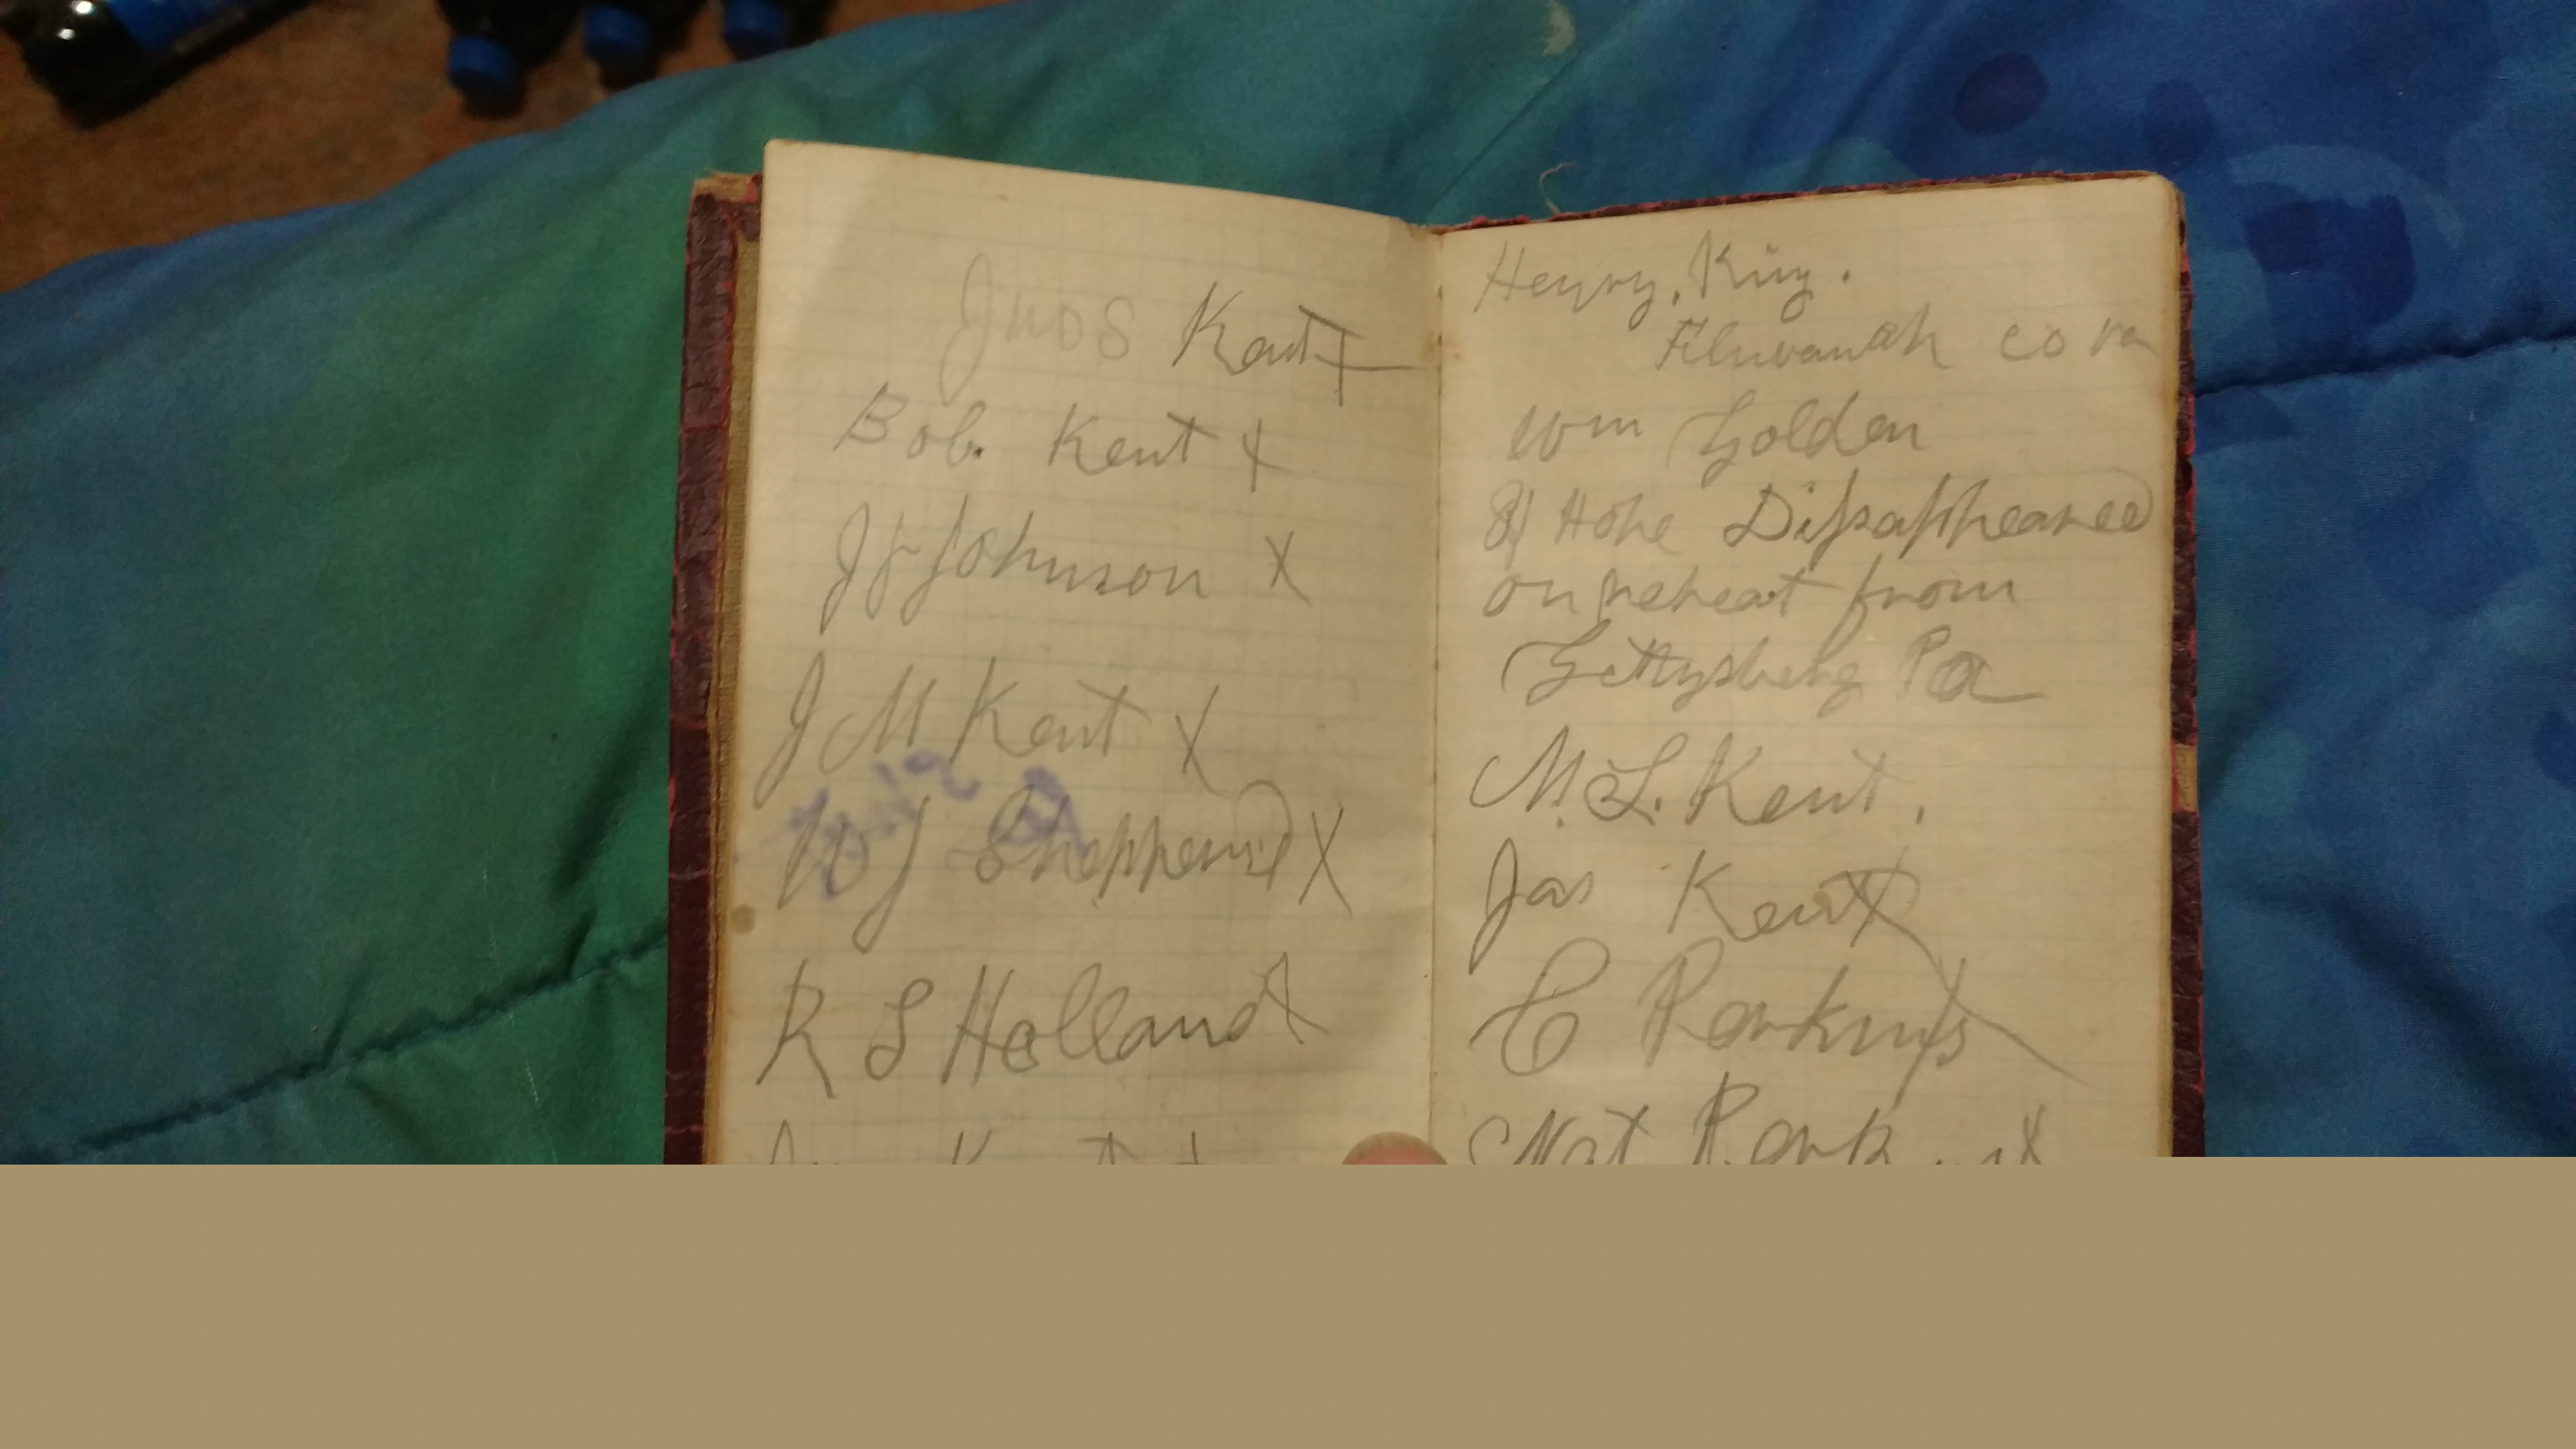 Jno S Kent X
Bob. Kent X
J F Johnson X
J M Kent X
W J Shepperd X
R S Holland X
Kent X
Henry, King.
Fluvanah co va
Wm Golden
Disappeared
on retreat from
Gettysberg Pa
M. L. Kent,
Jas Kent X
C Perkins X
Nat Perkins X